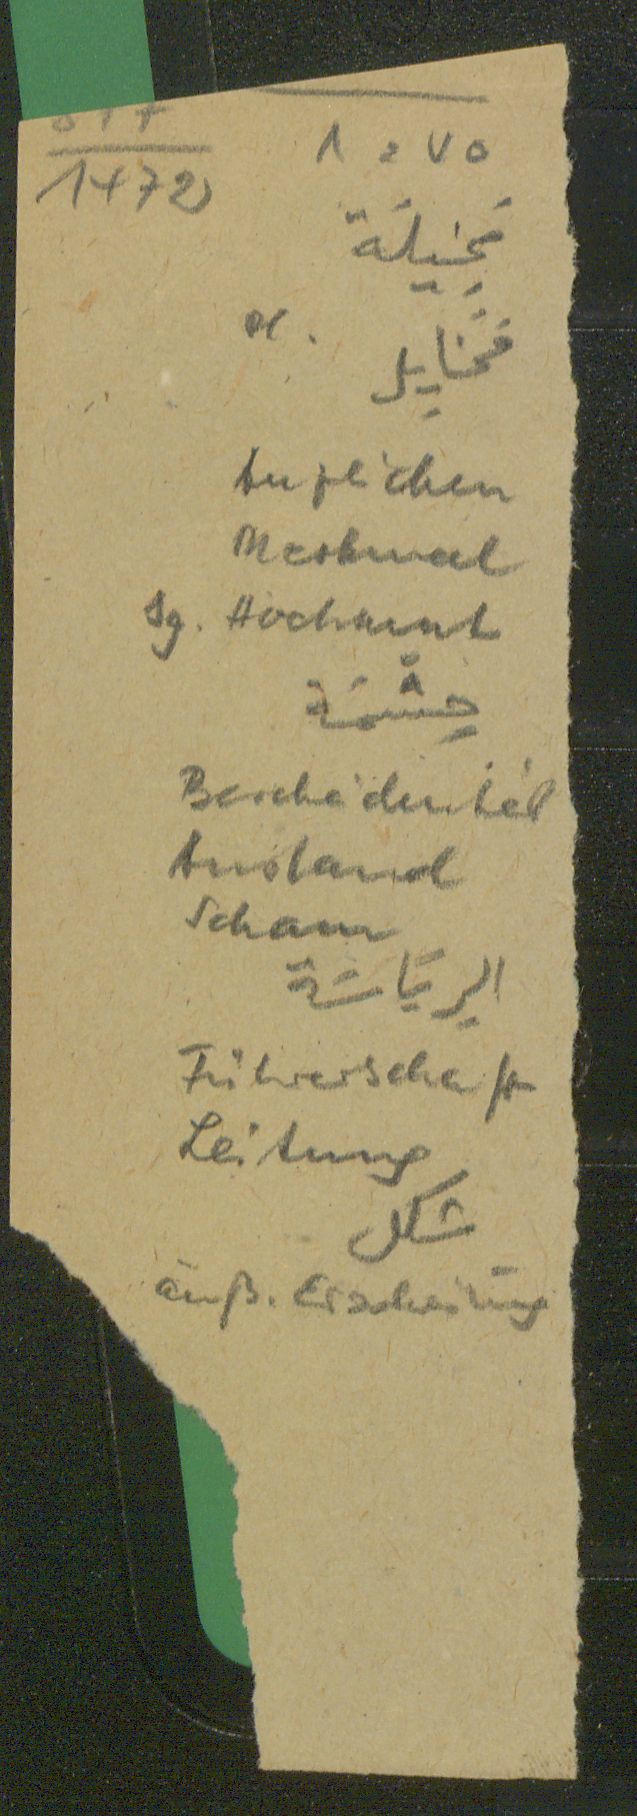 1472
مَخِيلَة
pl. مَخَايِل
Anzeichen
Merkmal
Sg. Hochamt
حِشْمَة
Bescheidenheit
Anstand
Scham
الرِيَاسَة
Führerschaft
Leitung
شكل
äuß. Erscheinung